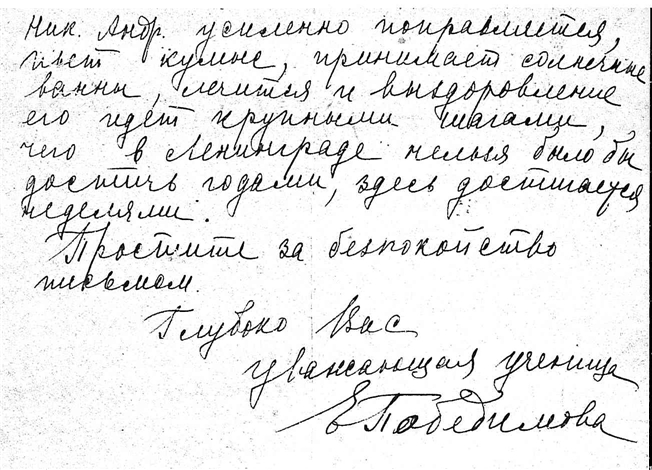 Ник. Андр. усиленно поправляется,
пьет кумыс, принимает солнечные
ванны, лечится и выздоровление
его идёт крупными шагами,
чего в Ленинграде нельзя было бы
достичь годами, здесь достигается
неделями.
Простите за безпокойство
письмом.
Глубоко Вас
уважающая ученица
Е Победимова